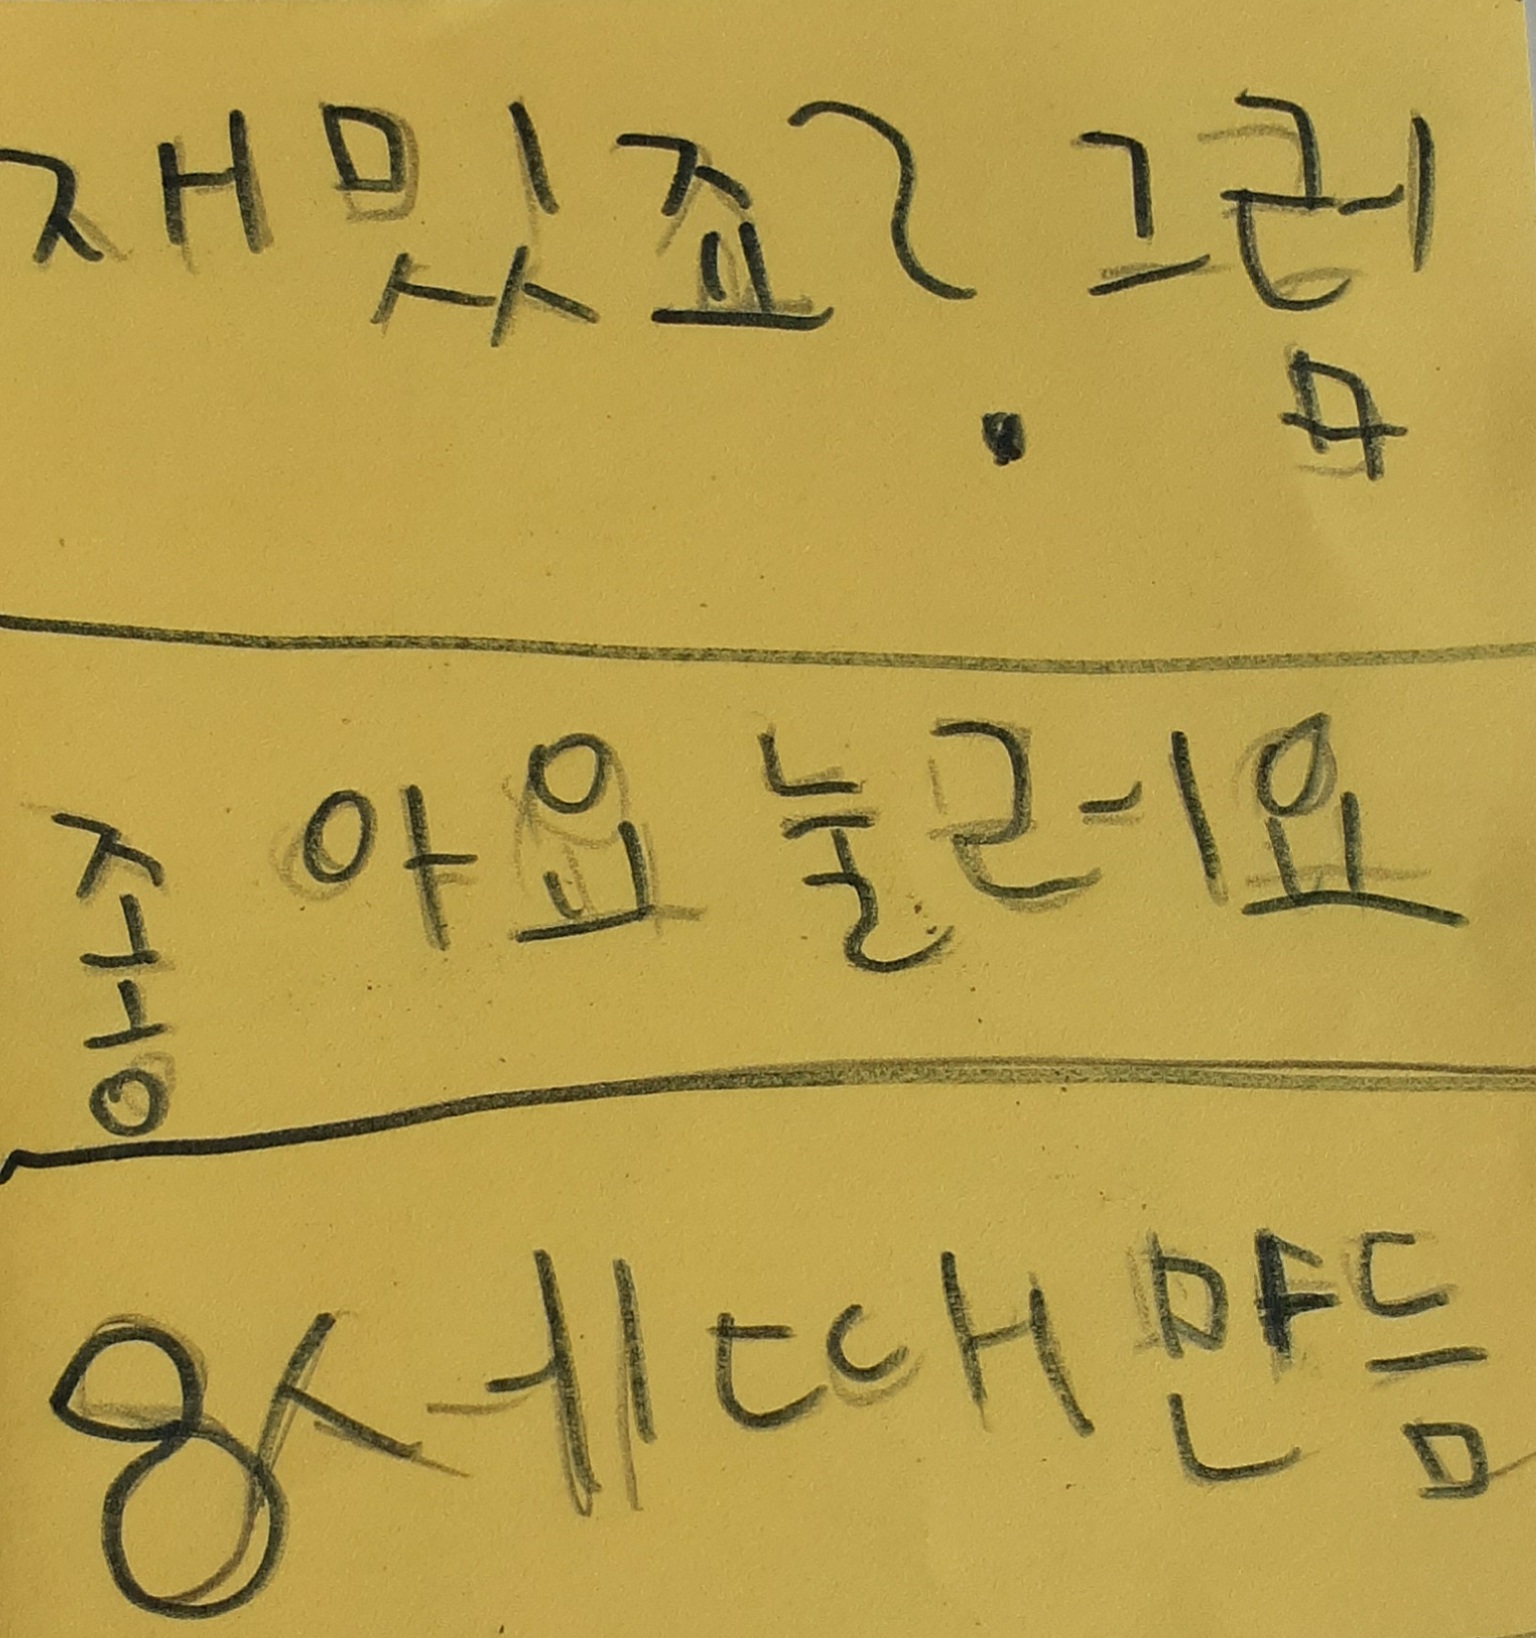 재밌죠? 그럼
좋아요 눌러요
8세때 만듬